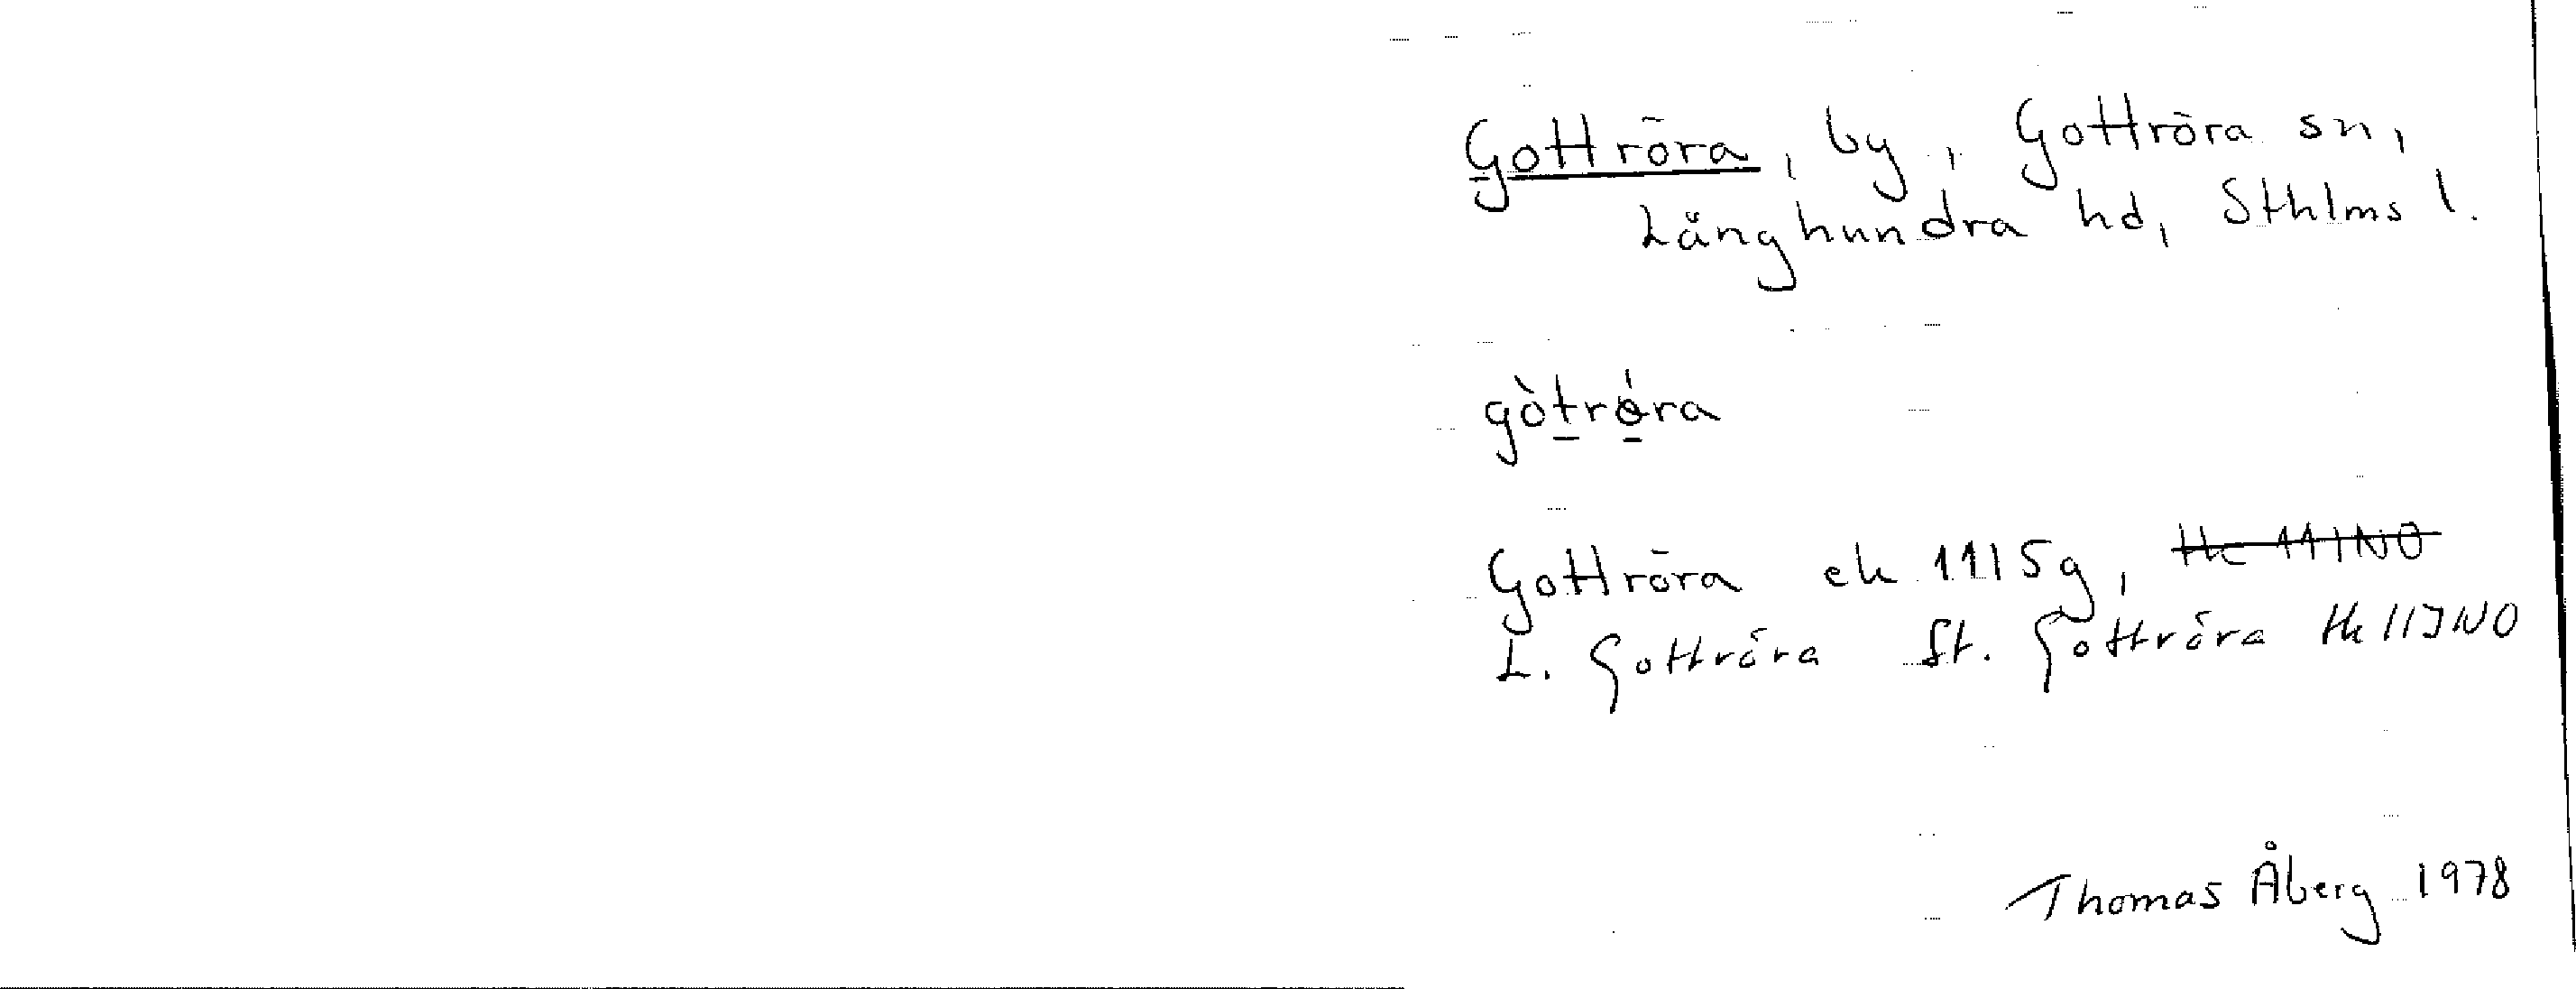 Gottröra, by, Gottröra sn,
Långhundra hd, Sthlms l.
gòtrǿra
Gottröra ek 11I5g, Hc 11INO
L. Gottröra St. Gottröra Hk 11INO
Thomas Åberg 1978